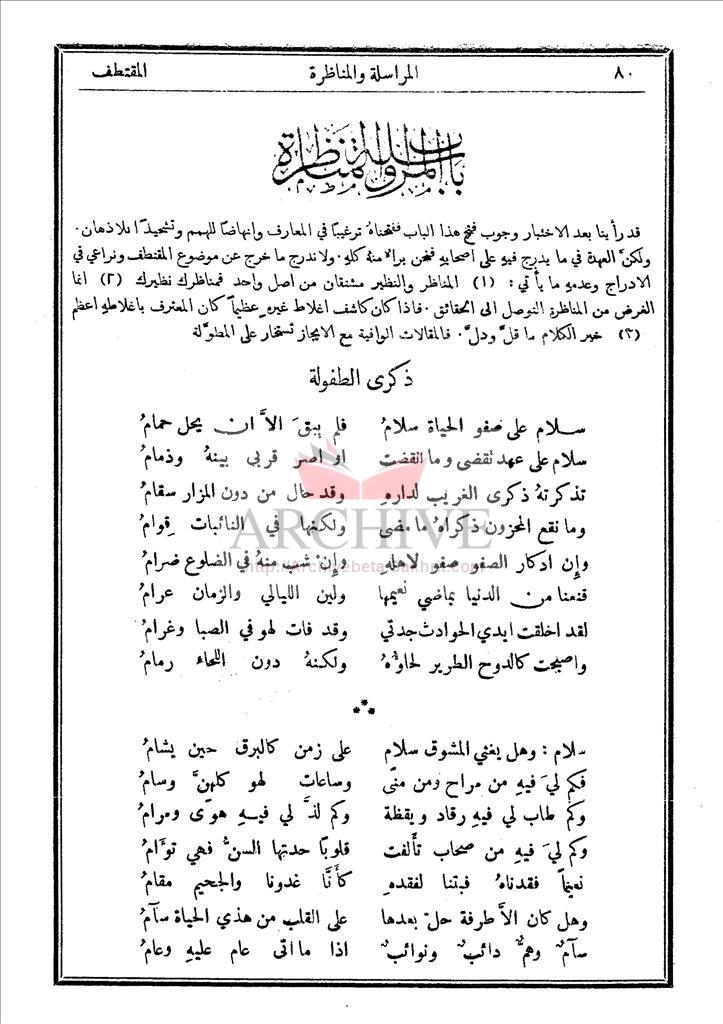 ٨٠ المراسلة والمناظرة المقتطف
باب المراسلة والمناظرة
قد رأينا بعد الاختبار وجوب فتح هذا الباب ففتحناهُ ترغيبًا في المعارف وانهاضًا للهمم وتشحيذًا للاذهان .
ولكنَّ العهدة في ما يدرج فيهِ على اصحابهِ فنحن برالا منهُ كلهِ . ولا ندرج ما خرج عن موضوع المقتطف ونراعي في
الادراج وعدمهِ ما يأتي : (١) المناظر والنظير مشتقان من اصل واحد فمناظرك نظيرك (٢) انما
الغرض من المناظرة التوصل الى الحقائق . فاذا كان كاشف اغلاط غيرهِ عظيماً كان المعترف باغلاطهِ اعظم
(٣) خير الكلام ما قلَّ ودلَّ . فالمقالات الوافية مع الايجاز تستخار على المطوَّلة
ذكرى الطفولة
سلام على صفو الحياة سلامُ فلم يبقَ الاَّ ان يحل حمامُ
سلام على عهد تقضى وما انقضت اواصر قربى بينهُ وذمامُ
تذكرتهُ ذكرى الغريب لدارهِ وقد حال من دون المزار سقامُ
وما نقع المحزون ذكراهُ ما مضى ولكنها في النائبات قِوامُ
وإن ادكار الصفو صفو لاهلهِ وإنْ شب منهُ في الضلوع ضرامُ
قنعنا من الدنيا بماضي نعيمها ولين الليالي والزمان عرامُ
لقد اخلقت ايدي الحوادث جدتي وقد فات لهو في الصبا وغرامُ
واصبحت كالدوح الطرير لحاؤهُ ولكنهُ دون اللحاء رمامُ
⁂
سلام : وهل يغني المشوق سلام على زمن كالبرق حين يشامُ
فكم ليَ فيهِ من مراح ومن منًى وساعات لهو كلهنَّ وسامُ
وكم طاب لي فيهِ رقاد ويقظة وكم لذَّ لي فيهِ هوًى ومرامُ
وكم ليَ فيهِ من صحاب تألفت قلوبًا حدتها السنُّ فهي توأمُ
نعيماً فقدناهُ فبتنا لفقدهِ كأنَّا غدونا والجحيم مقامُ
وهل كان الاَّ طرفة حلَّ بعدها على القلب من هذي الحياة سآمُ
سآمٌ وهمٌّ دائبٌ ونوائبٌ اذا ما اتى عام عليهِ وعامُ
ARCHIVE
http://Archivebeta.Sakhrit.com